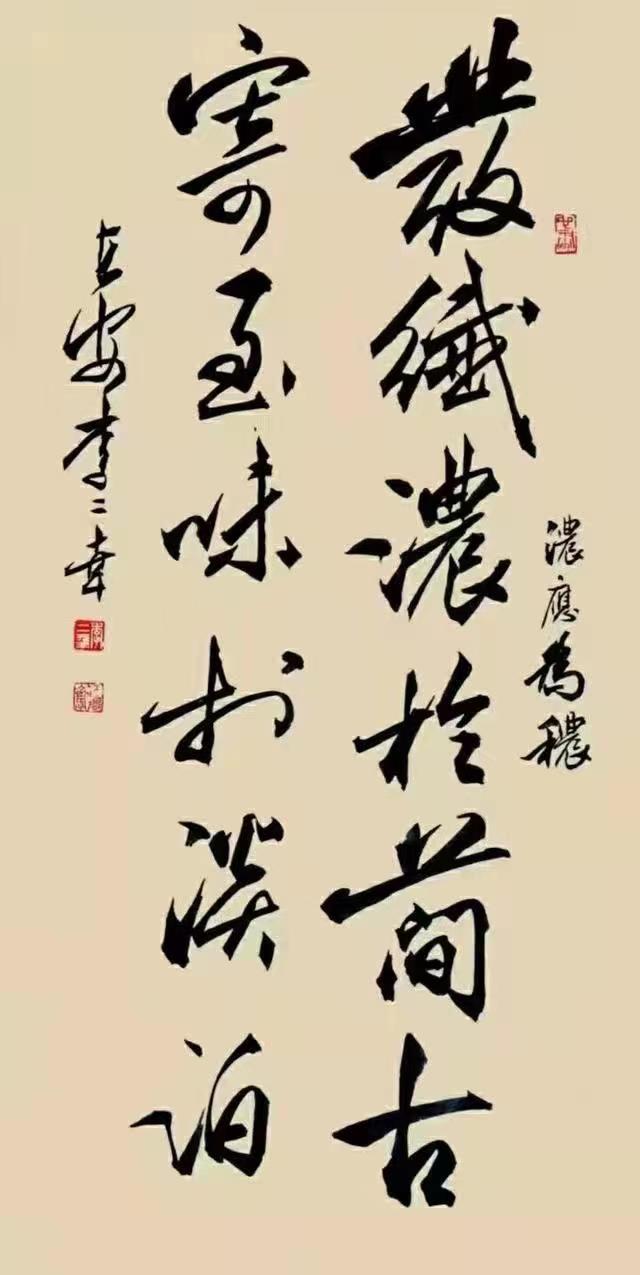 發纖濃於簡古
寄至味於淡泊
濃應為穠
長安李二幸